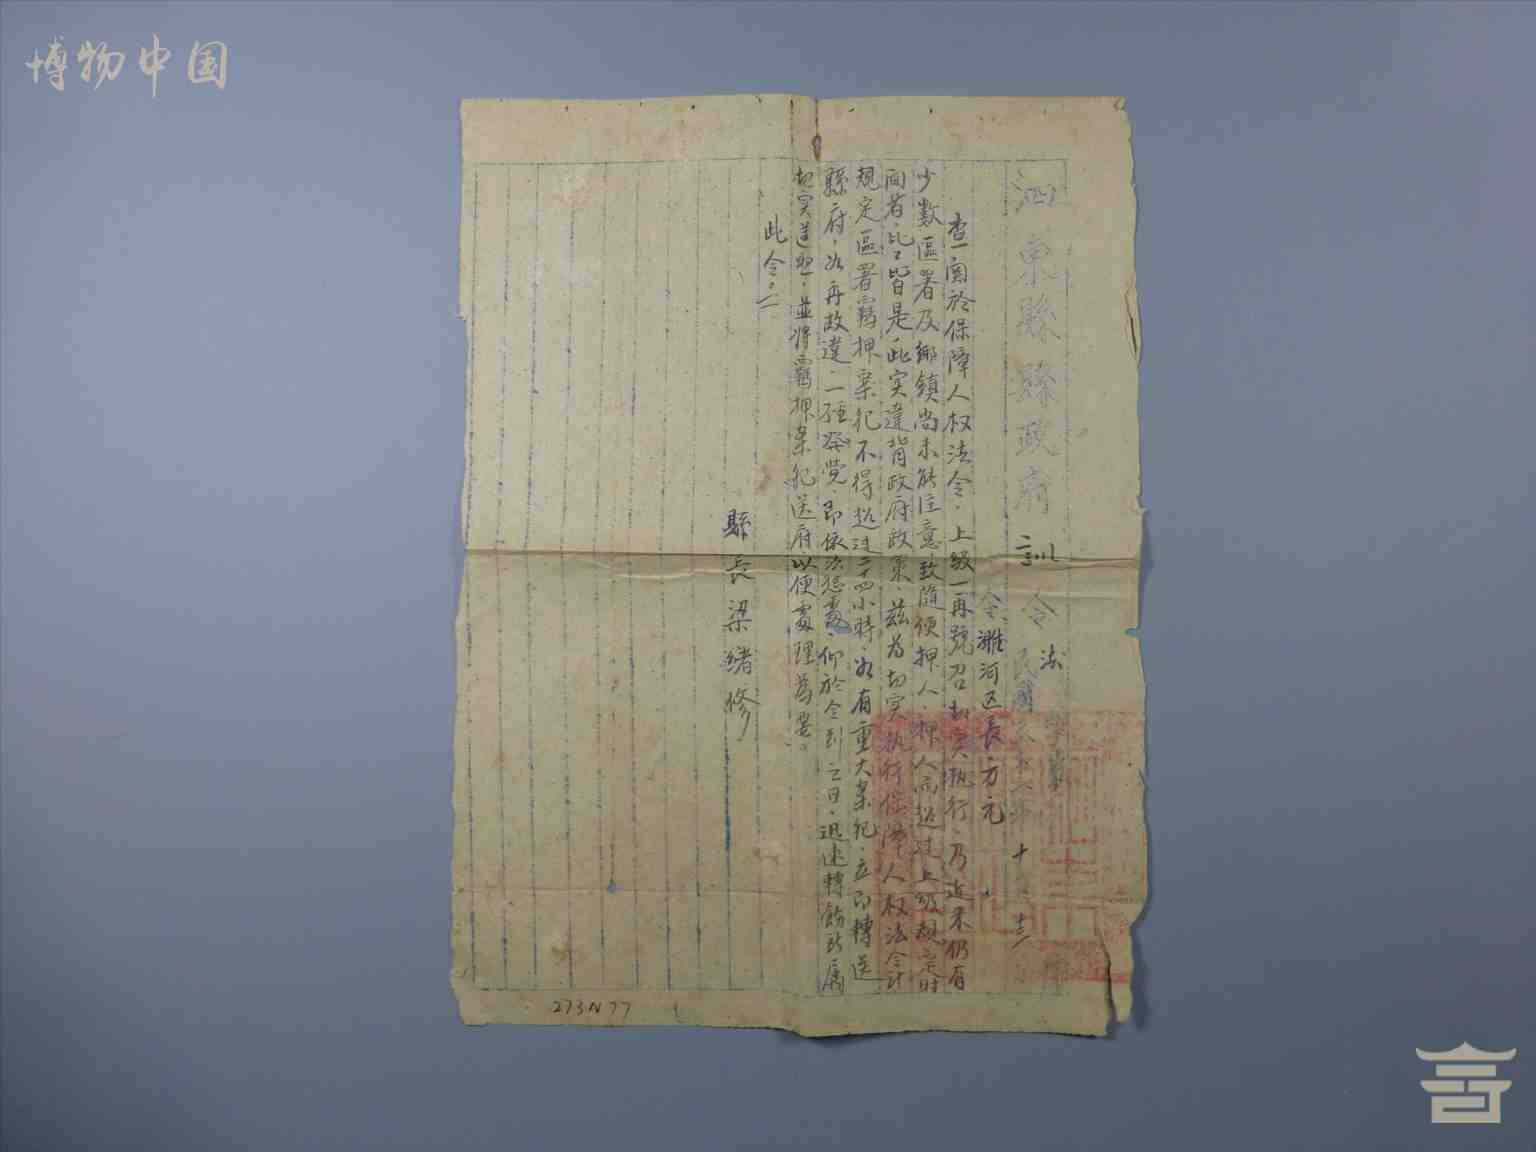 博物中国
泗東縣縣政府訓令 法
民國 年 十 月 十三
令濉河区長 方元
查：関於保障人权法令，上級一再號召切实执行，乃近来仍有
少数區署及鄉鎮尚未能注意，致隨便押人，押人而超过上級規定时
间者，比比皆是，此实違背政府政策，兹为切实执行保障人权法令計
規定區署羈押案犯不得超过二十四小時，如有重大案犯，立即轉送
縣府，如再故違，一經發覺，即依法惩處，仰於令到之日，迅速轉飭所屬
切实遵照，並将羈押案犯送府以便處理為要。
此令。
縣長梁緒修
273N77